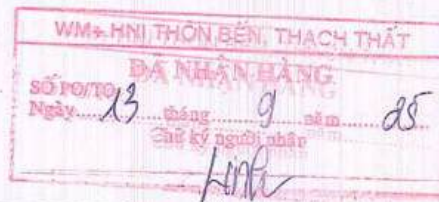 WM+ HNI THÔN BẾN, THẠCH THẤT
ĐÃ NHẬN HÀNG
SỐ PO/TO
Ngày 13 tháng 9 năm 25
Chữ ký người nhận
Linh